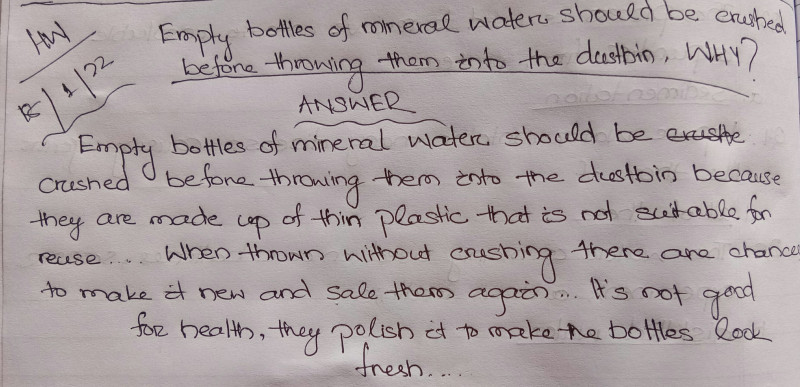 HW
15/1/22
Empty bottles of mineral water should be crushed
before throwing them into the dustbin. WHY?
ANSWER
Empty bottles of mineral water should be crushe
crushed before throwing them into the dustbin because
they are made up of thin plastic that is not suitable for
reuse.... When thrown without crushing there are chances
to make it new and sale them again... It's not good
for health, they polish it to make the bottles look
fresh....